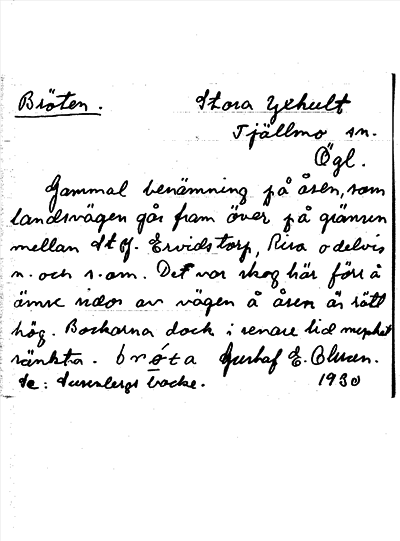 Bröten.
Stora Yxhult
Tjällmo sn.
Ögl.
Gammal benämning på åsen, som
landsvägen går fram över på gränsen
mellan St Yx. Ervidstorp, Risa o delvis
n. och s. om. Det var skog här förr å
ömse sidor av vägen å åsen är rätt
hög. Backarna dock i senare tid mycket
sänkta. brǿta Gustaf E. Olsson.
Se: backe. 1930